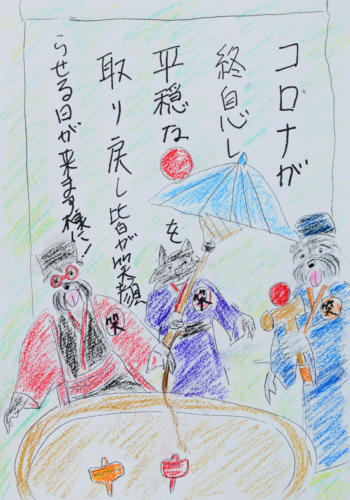 コロナが
終息し
平穏なを
取り戻し皆が笑顔
らせる日が来ます様に!
笑
笑
笑